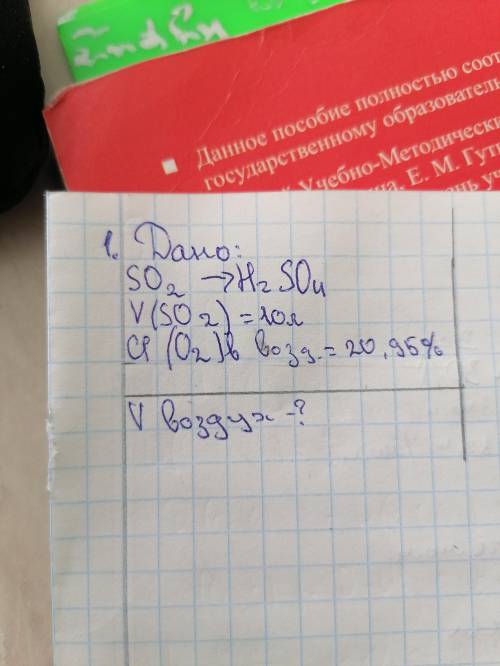 Данное пособие полностью соот
государственному образовател
Учебно-Методическ
Е. М. Гут
1. Дано:
SO2 → H2SO4
V(SO2) = 10л
(O2) в возд. = 20,95%
V воздух -?